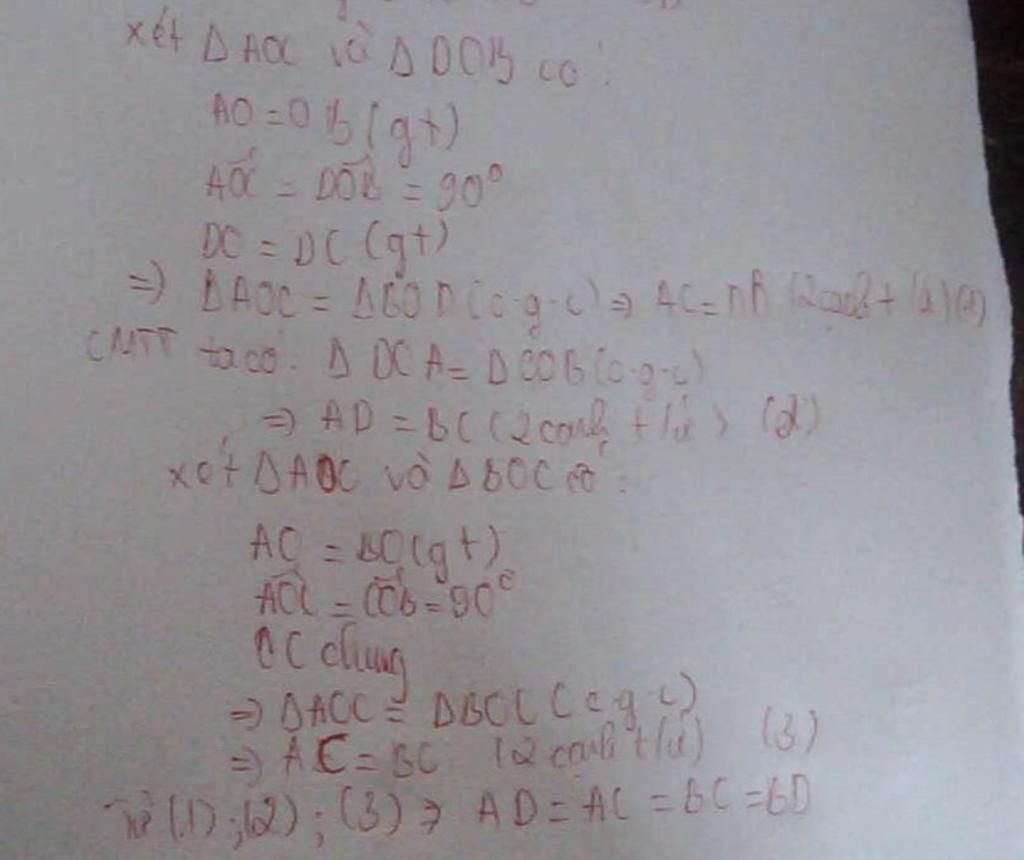 xét Δ AOC và Δ DOB có:
AO = OB (gt)
AÔC = DÔB = 90°
DC = DC (gt)
=> ΔAOC = ΔBOD (c.g.c) => AC = DB (2 cạnh t/ứ) (1)
CMTT ta có: Δ DOA = Δ COB (c.g.c)
=> AD = BC (2 cạnh t/ứ) (2)
xét ΔAOC và ΔBOC có:
AO = BO (gt)
AÔC = CÔB = 90°
OC chung
=> ΔAOC = ΔBOC (c.g.c)
=> AC = BC (2 cạnh t/ứ) (3)
Từ (1); (2); (3) => AD = AC = BC = BD